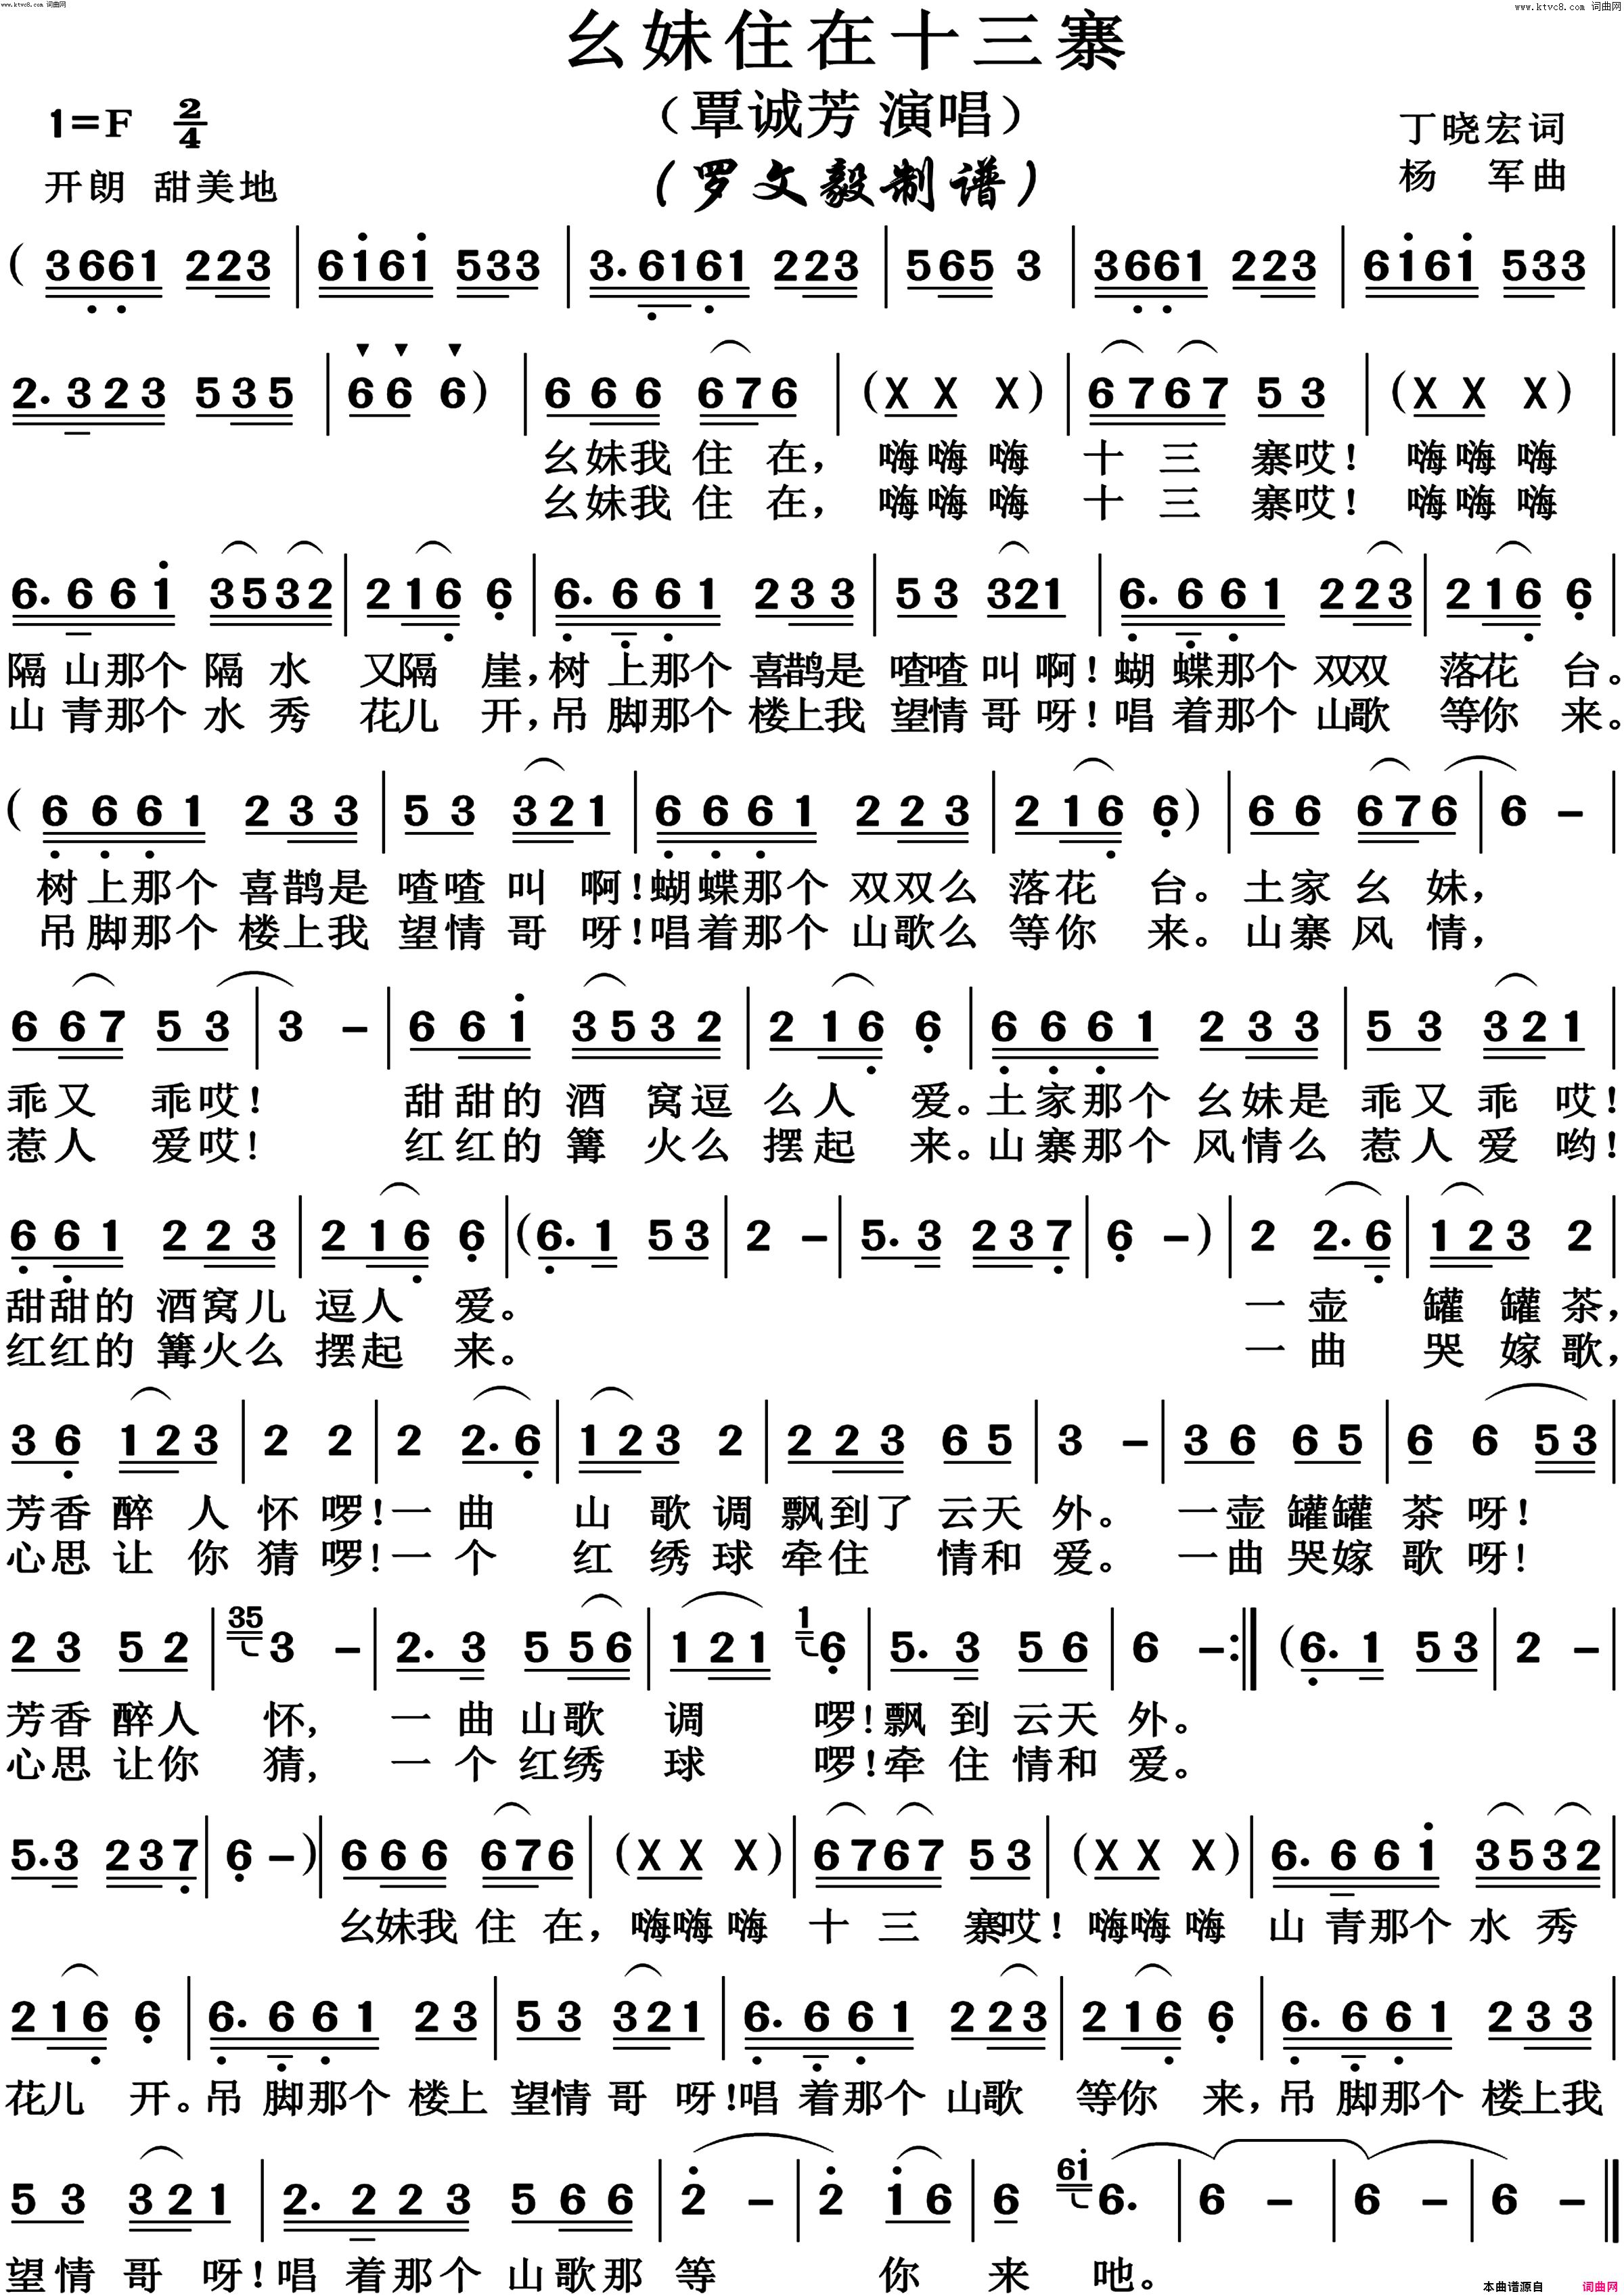 www.ktvc8.com 词曲网
www.ktvc8.com 词曲网
幺妹住在十三寨
1=F 2/4
（覃诚芳 演唱）
丁晓宏词
开朗 甜美地
（罗文毅制谱）
杨 军曲
( 3661 223 | 6161 533 | 3.6161 223 | 565 3 | 3661 223 | 6161 533 |
2.323 535 | 66 6) | 666 676 | (X X X) | 6767 53 | (X X X)
幺妹我 住 在， 嗨嗨嗨 十 三 寨哎！ 嗨嗨嗨
幺妹我 住 在， 嗨嗨嗨 十 三 寨哎！ 嗨嗨嗨
6.661 3532 | 216 6 | 6.661 233 | 53 321 | 6.661 223 | 216 6 |
隔山那个 隔 水 又隔 崖，树 上那个 喜鹊是 喳喳 叫 啊！蝴 蝶那个 双双 落花 台。
山 青那个 水 秀 花儿 开，吊 脚那个 楼上我 望情 哥 呀！唱 着那个 山歌 等你 来。
( 6661 233 | 53 321 | 6661 223 | 216 6) | 66 676 | 6 –
树上那个 喜鹊是 喳喳 叫 啊！蝴蝶那个 双双么 落花 台。 土家 幺 妹，
吊脚那个 楼上我 望情 哥 呀！唱着那个 山歌么 等你 来。 山寨 风 情，
667 53 | 3 – | 661 3532 | 216 6 | 6661 233 | 53 321 |
乖又 乖哎！ 甜甜的 酒 窝逗 么人 爱。土家那个 幺妹是 乖又 乖 哎！
惹人 爱哎！ 红红的 篝 火么 摆起 来。山寨那个 风情么 惹人 爱 哟！
661 223 | 216 6 | (6.1 53 | 2 – | 5.3 237 | 6 –) | 2 2.6 | 123 2 |
甜甜的 酒窝儿 逗人 爱。 一 壶 罐 罐 茶，
红红的 篝火么 摆起 来。 一 曲 哭 嫁 歌，
36 123 | 2 2 | 2 2.6 | 123 2 | 223 65 | 3 – | 36 65 | 6 6 53 |
芳香 醉 人 怀 啰！一 曲 山 歌 调 飘到了 云天 外。 一壶 罐罐 茶 呀！
心思 让 你 猜 啰！一 个 红 绣 球 牵住 情和 爱。 一曲 哭嫁 歌 呀！
23 52 | 35 3 – | 2.3 556 | 121 1 6 | 5.3 56 | 6 –:‖ (6.1 53 | 2 –
芳香 醉人 怀， 一 曲 山歌 调 啰！飘 到 云天 外。
心思 让你 猜， 一 个 红绣 球 啰！牵 住 情和 爱。
5.3 237 | 6 –) | 666 676 | (X X X) | 6767 53 | (X X X) | 6.661 3532 |
幺妹我 住 在，嗨嗨 嗨 十 三 寨哎！嗨嗨 嗨 山 青那个 水 秀
216 6 | 6.661 23 | 53 321 | 6.661 223 | 216 6 | 6.661 233 |
花儿 开。吊 脚那个 楼上 望情 哥 呀！唱 着那个 山歌 等你 来，吊 脚那个 楼上我
53 321 | 2.223 566 | 2 – | 2 16 | 6 61 6. | 6 – | 6 – | 6 – ‖
望情 哥 呀！唱 着那个 山歌那 等 你 来 吔。
本曲谱源自 词曲网